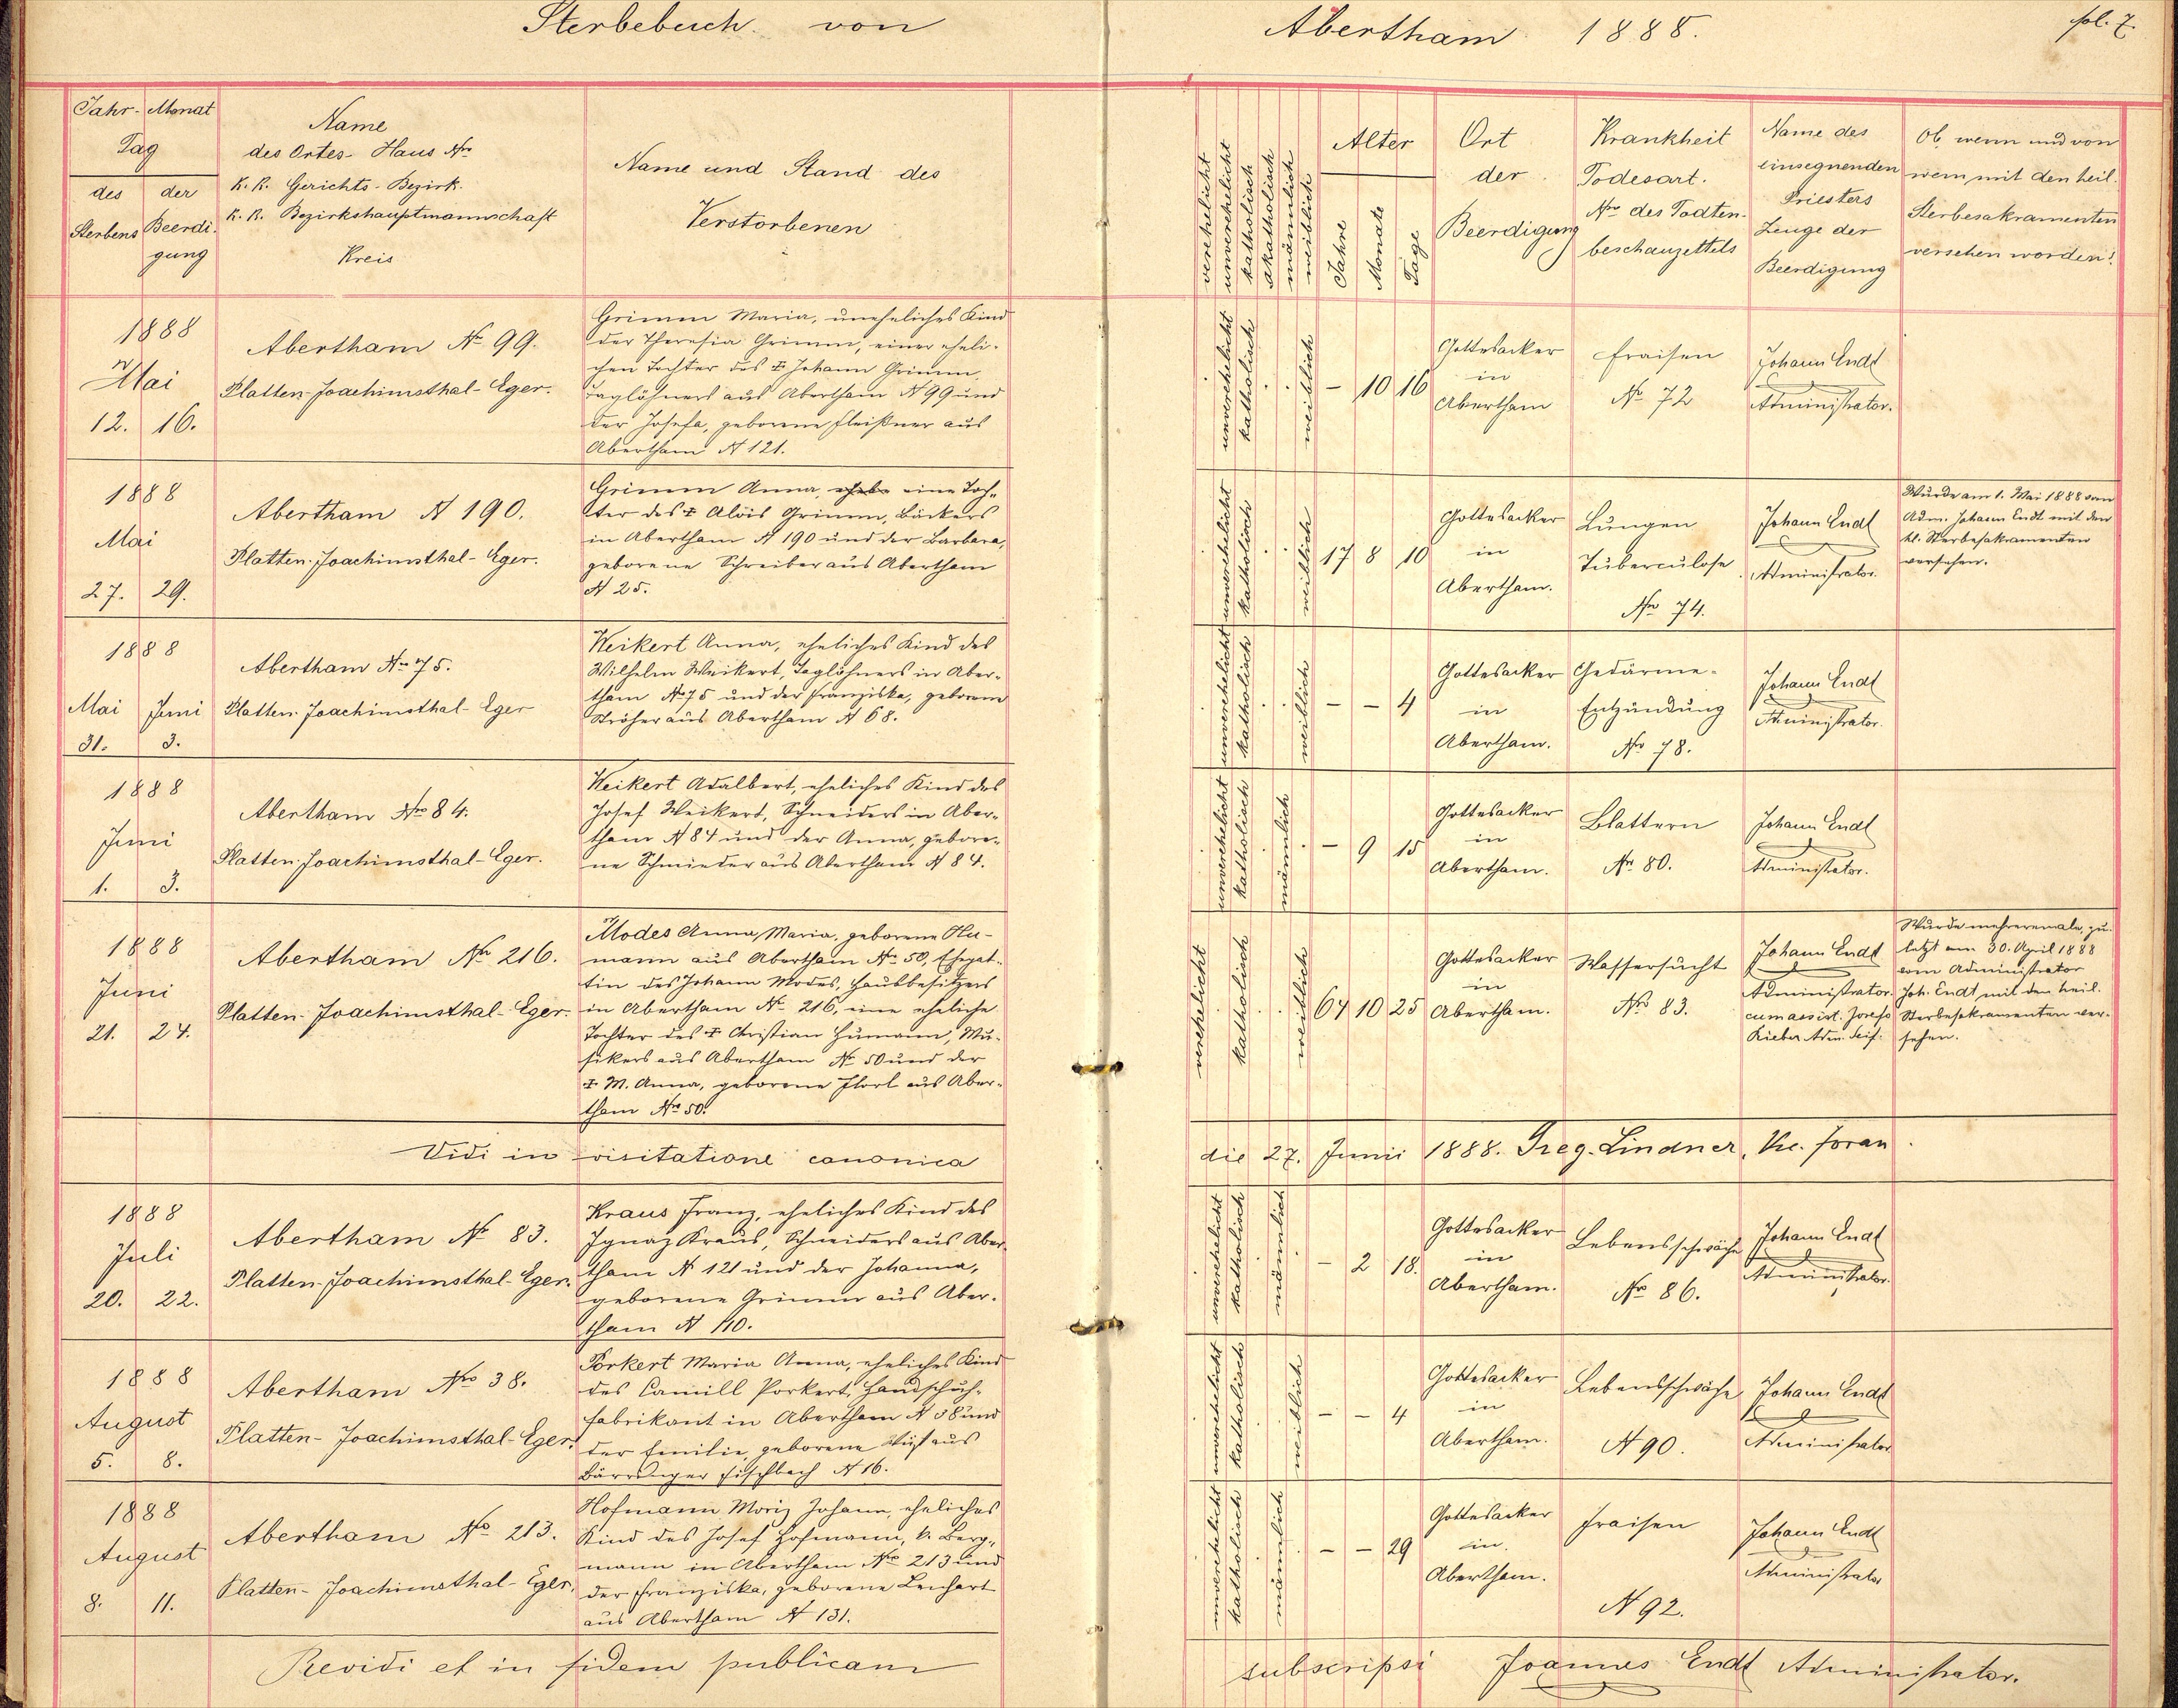 Sterbebuch von Abertham 1888. fol. 7.
Jahr- Monat
Tag
des der
Sterbens Beerdi-
gung
Name
des Ortes- Haus Nro
K. K. Gerichts-Bezirk.
K. K. Bezirkshauptmannschaft
Kreis
Name und Stand des
Verstorbenen
verehelicht
unverehelicht
katholisch
akatholisch
männlich
weiblich
Alter
Jahre
Monate
Tage
Ort
der
Beerdigung
Krankheit
Todesart.
Nro des Todten-
beschauzettels
Name des
einsegnenden
Priesters
Zeuge der
Beerdigung
Ob, wenn und von
wem mit den heil.
Sterbesakramenten
versehen worden?
1888
Mai
12. 16.
Abertham No 99.
Platten-Joachimsthal-Eger.
Grimm Maria, uneheliches Kind
der Theresia Grimm, einer eheli-
chen Tochter des ✝ Johann Grimm
Taglöhners aus Abertham N 99 und
der Josefa, geborene Fleißner aus
Abertham N 121.
unverehelicht
katholisch
weiblich
- 10 16
Gottesacker
in
Abertham
Fraisen
No 72
Johann Endt
Administrator.
1888
Mai
27. 29.
Abertham N 190.
Platten-Joachimsthal-Eger.
Grimm Anna, eine Toch-
ter des ✝ Alois Grimm, Bäckers
in Abertham N 190 und der Barbara,
geborene Schreiber aus Abertham
N 25.
unverehelicht
katholisch
weiblich
17 8 10
Gottesacker
in
Abertham.
Lungen
Tuberculose
Nro 74.
Johann Endt
Administrator.
Wurde am 1. Mai 1888 vom
Adm. Johann Endt mit den
hl. Sterbesakramenten
versehen.
1888
Mai Juni
31. 3.
Abertham Nro 75.
Platten-Joachimsthal-Eger
Weikert Anna, eheliches Kind des
Wilhelm Weikert, Taglöhners in Aber-
tham No 75 und der Franziska, geborene
Ströher aus Abertham N 68.
unverehelicht
katholisch
weiblich
- - 4
Gottesacker
in
Abertham.
Gedärme-
Entzündung
Nro 78.
Johann Endt
Administrator.
1888
Juni
1. 3.
Abertham Nro 84.
Platten-Joachimsthal-Eger.
Weikert Adalbert, eheliches Kind des
Josef Weikert, Schneiders in Aber-
tham N 84 und der Anna, gebore-
ne Schmieder aus Abertham N 84.
unverehelicht
katholisch
männlich
- 9 15
Gottesacker
in
Abertham.
Blattern
Nr 80.
Johann Endt
Administrator.
1888
Juni
21. 24.
Abertham Nro 216.
Platten-Joachimsthal-Eger.
Modes Anna Maria, geborene Hu-
mann aus Abertham No 50, Ehegat-
tin des Johann Modes, Hausbesitzers
in Abertham No 216, eine eheliche
Tochter des ✝ Christian Humann, Mu-
sikers aus Abertham No 50 und der
✝ M. Anna, geborene aus Aber-
tham Nro 50.
verehelicht
katholisch
weiblich
64 10 25
Gottesacker
in
Abertham.
Wassersucht
Nro 83.
Johann Endt
Administrator
cum assist. Josefo
Rieber Adm. Seif.
Wurde mehreremale, zu-
letzt am 30. April 1888
vom Administrator
Joh. Endt mit den heil.
Sterbesakramenten ver-
sehen.
Vidi in visitatione canonica die 27. Junii 1888. Greg. Lindner, Vic. foran.
1888
Juli
20. 22.
Abertham No 83.
Platten-Joachimsthal-Eger.
Kraus Franz, eheliches Kind des
Ignaz Kraus, Schneiders aus Aber-
tham N 121 und der Johanna,
geborene Grimm aus Aber-
tham N 110.
unverehelicht
katholisch
männlich
- 2 18.
Gottesacker
in
Abertham.
Lebensschwäche
Nro 86.
Johann Endt
Administrator.
1888
August
5. 8.
Abertham Nro 38.
Platten-Joachimsthal-Eger.
Porkert Maria Anna, eheliches Kind
des Camill Porkert, Handschuh-
fabrikant in Abertham N 38 und
der Emilie geborene aus
Bärringer Fischbach N 16.
unverehelicht
katholisch
weiblich
- - 4
Gottesacker
in
Abertham.
Lebensschwäche
N 90.
Johann Endt
Administrator
1888
August
8. 11.
Abertham No 213.
Platten-Joachimsthal-Eger.
Hofmann Moriz Johann, eheliches
Kind des Josef Hofmann, k. Berg-
mann in Abertham Nro 213 und
der Franziska, geborene Lenhart
aus Abertham N 131.
unverehelicht
katholisch
männlich
- - 29
Gottesacker
in
Abertham.
Fraisen
N 92.
Johann Endt
Administrator
Revidi et in fidem publicam subscripsi Joannes Endt Administrator.